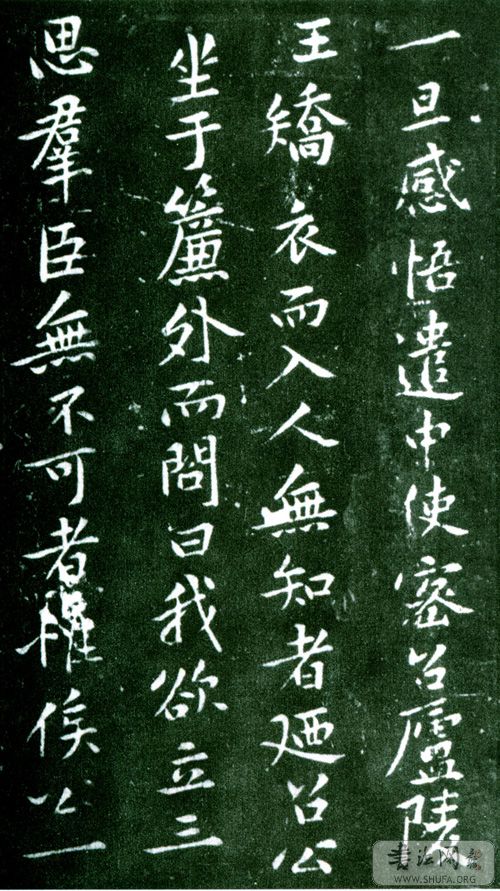 一旦感悟遣中使密召廬陵
王矯衣而入人無知者廼召公
坐于簾外而問曰我欲立三
思羣臣無不可者俟公一
书法网
WWW.SHUFA.ORG